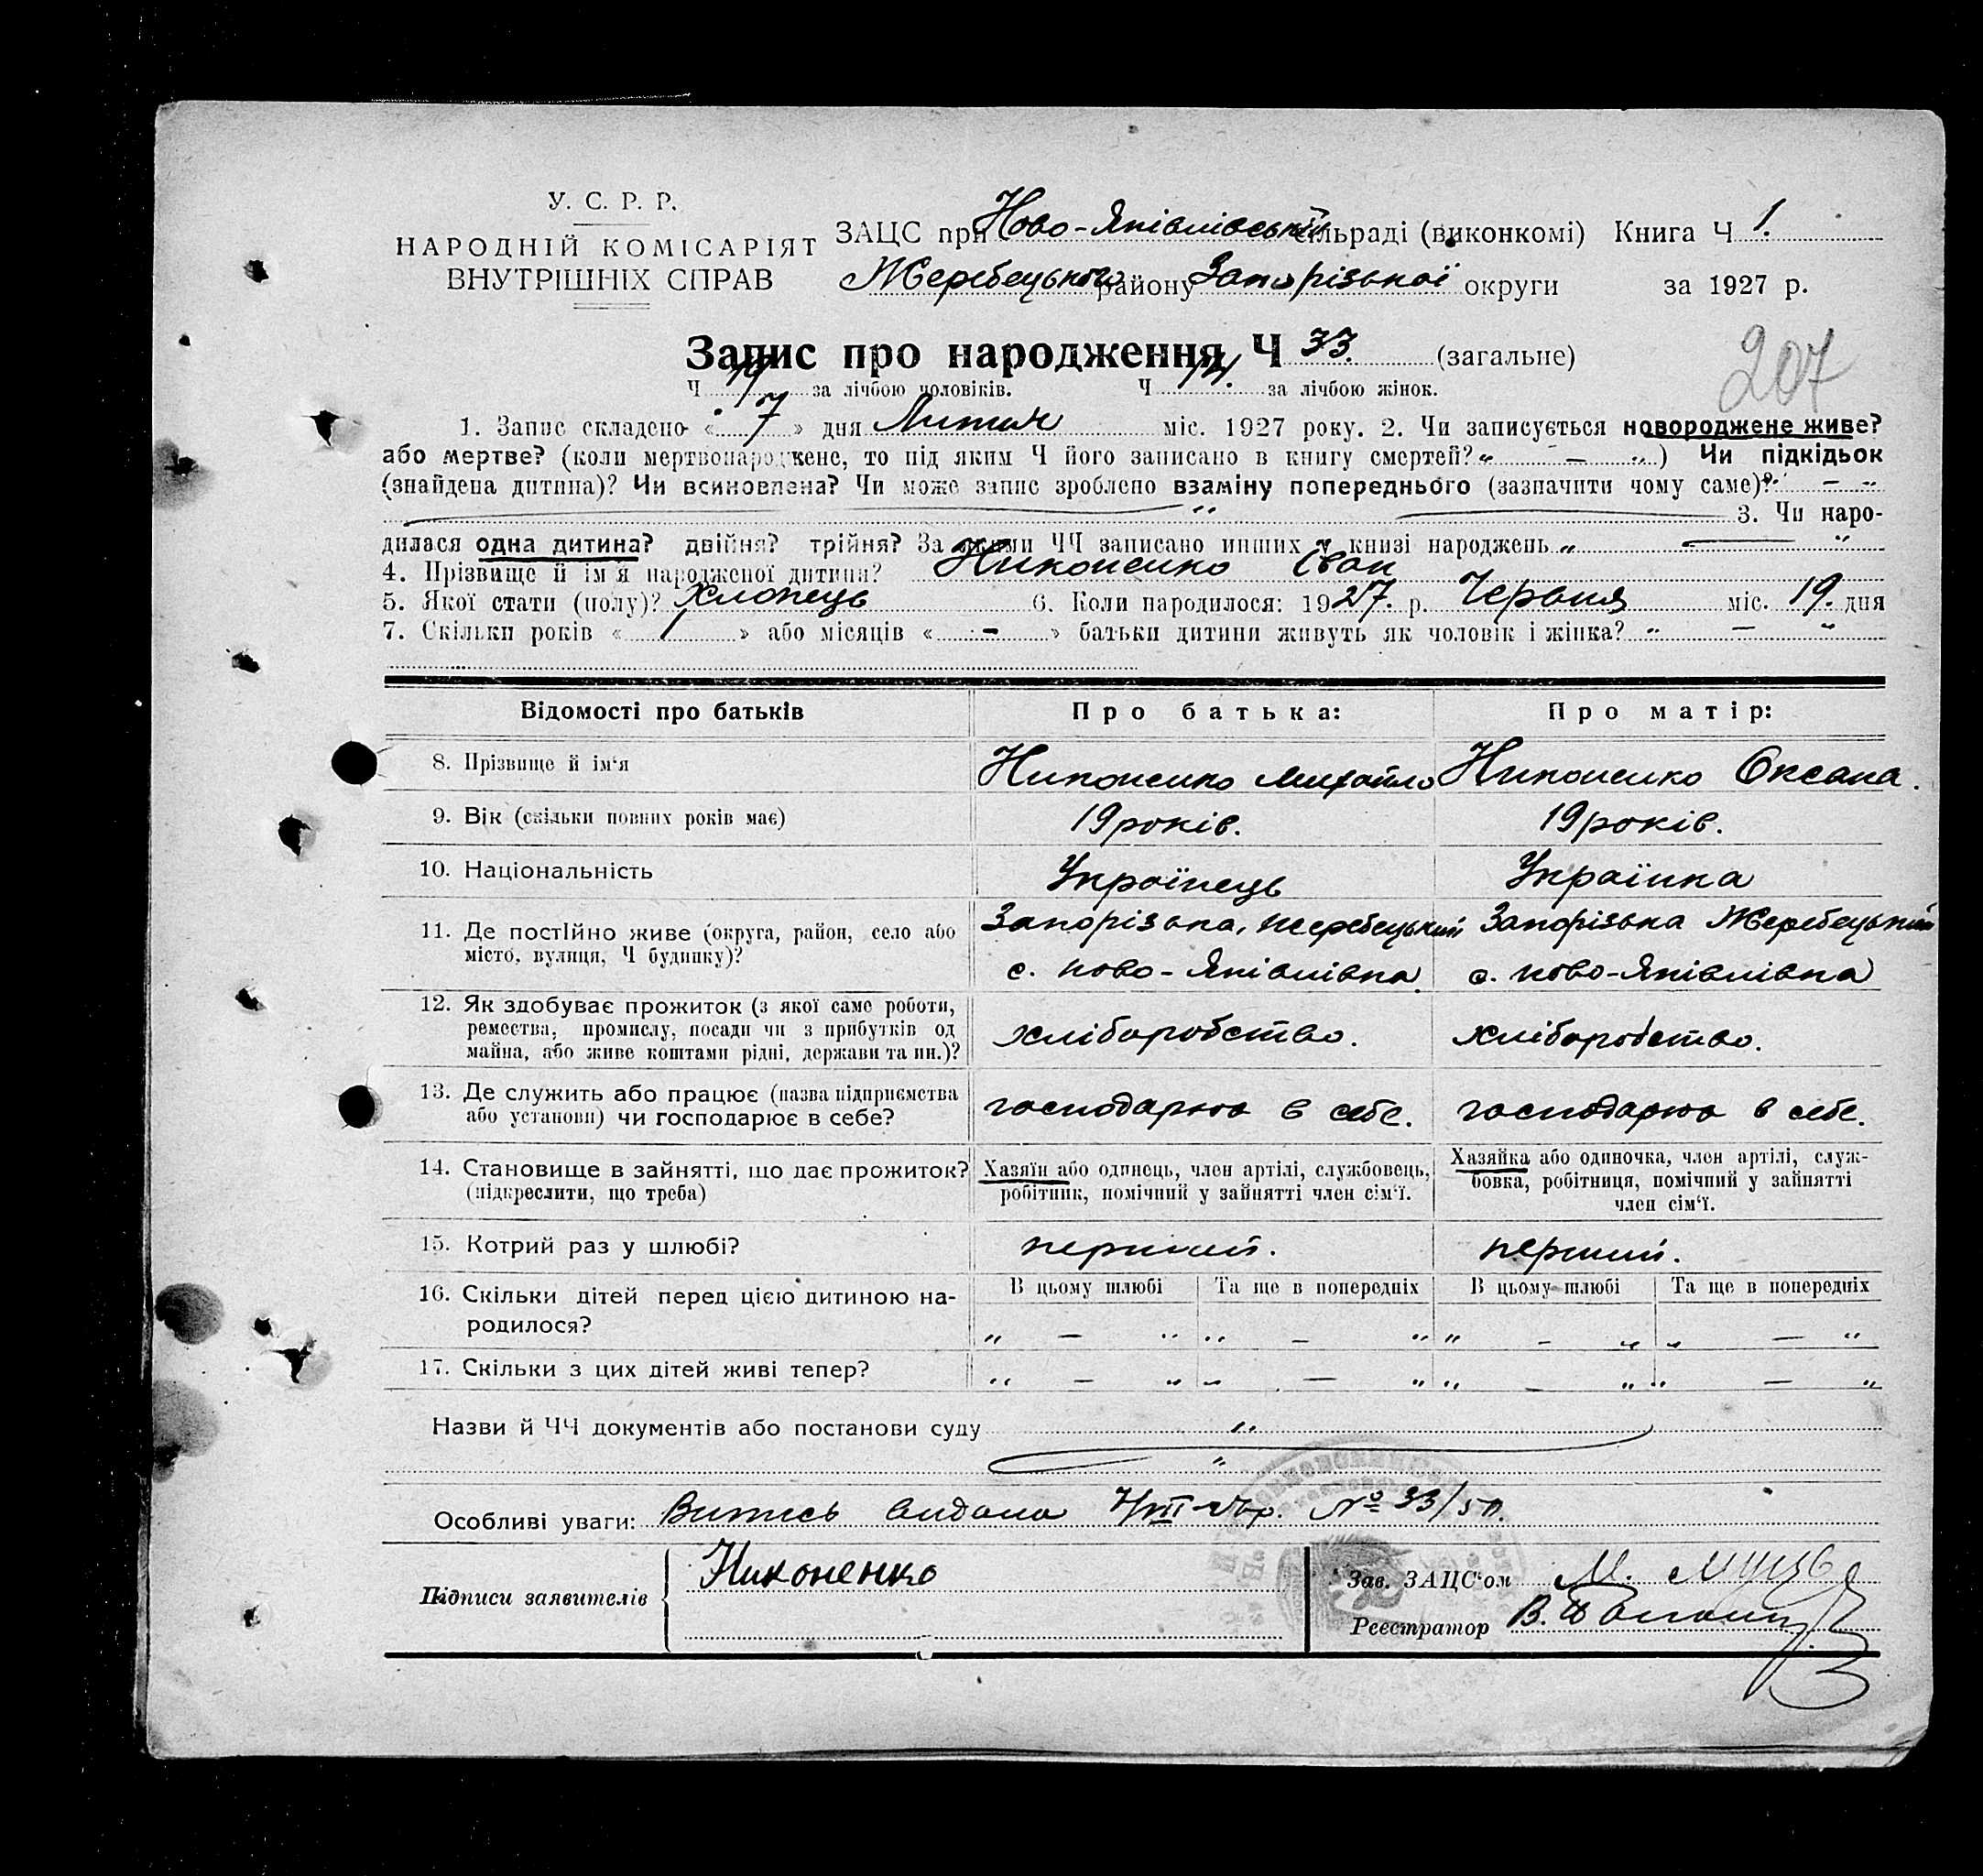 У. С. Р. Р.
НАРОДНІЙ КОМІСАРІЯТ
ВНУТРІШНІХ СПРАВ
ЗАЦС при Ново-Яківлівській сільраді (виконкомі) Книга Ч 1.
Жеребецького району Запорізької округи за 1927 р.
Запис про народження Ч 33. (загальне)
207
Ч 19 за лічбою чоловіків. Ч 14. за лічбою жінок.
1. Запис складено «7» дня Липня міс. 1927 року. 2. Чи записується новороджене живе?
або мертве? (коли мертвонароджене, то під яким Ч його записано в книгу смертей? „ — „) Чи підкідьок
(знайдена дитина)? Чи всиновлена? Чи може запис зроблено взаміну попереднього (зазначити чому саме)? „ — „
„ 3. Чи наро-
дилася одна дитина? двійня? трійня? За якими ЧЧ записано инших у книзі народжень „ — „
4. Прізвище й ім'я народженої дитини? Никоненко Іван
5. Якої стати (полу)? Хлопець 6. Коли народилося: 1927. р. Червня міс. 19. дня
7. Скільки років « 1 » або місяців « - » батьки дитини живуть як чоловік і жінка? „ — „
Відомості про батьків Про батька: Про матір:
8. Прізвище й ім'я Никоненко Михайло Никоненко Оксана.
9. Вік (скільки повних років має) 19 років. 19 років.
10. Національність Українець Українка
11. Де постійно живе (округа, район, село або місто, вулиця, Ч будинку)? Запорізька, Жеребецький с. Ново-Яківлівка Запорізька Жеребецький с. Ново-Яківлівка
12. Як здобуває прожиток (з якої саме роботи, ремества, промислу, посади чи з прибутків од майна, або живе коштами рідні, держави та ин.)? хліборобство. хліборобство.
13. Де служить або працює (назва підприємства або установи) чи господарює в себе? господарює в себе. господарює в себе.
14. Становище в зайнятті, що дає прожиток? (підкреслити, що треба) Хазяїн або одинець, член артілі, службовець, робітник, помічний у зайнятті член сім'ї. Хазяйка або одиночка, член артілі, служ-бовка, робітниця, помічний у зайнятті член сім'ї.
15. Котрий раз у шлюбі? перший. перший.
16. Скільки дітей перед цією дитиною на-родилося? В цьому шлюбі Та ще в попередніх В цьому шлюбі Та ще в попередніх
„ — „ „ — „ „ — „ „ — „
17. Скільки з цих дітей живі тепер? „ — „ „ — „ „ — „ „ — „
Назви й ЧЧ документів або постанови суду „
„
Особливі уваги: Випись видана № 33/50.
Підписи заявителів Никоненко
Зав. ЗАЦС'ом М.
Реєстратор В.